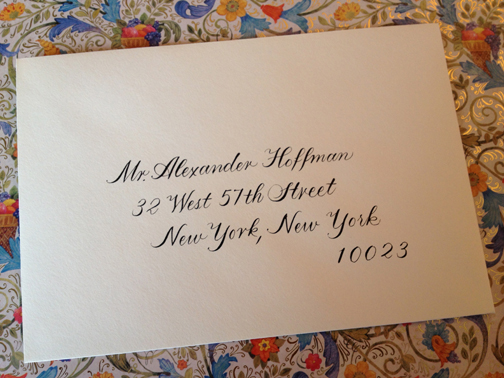 Mr. Alexander Hoffman
32 West 57th Street
New York, New York
10023